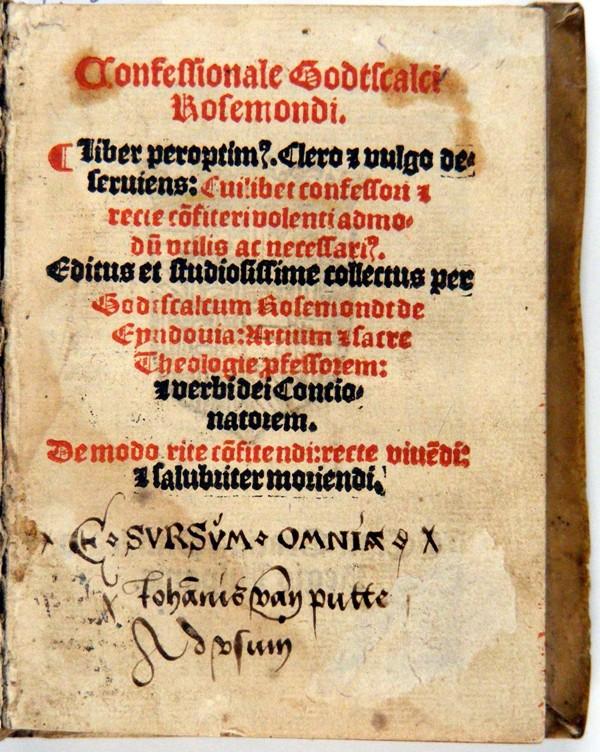 Confessionale Godtscalci
Rosemondi.
¶ Liber peroptimꝰ. Clero ⁊ vulgo de⸗
seruiens: Cuilibet confessori ⁊
recte cōfiteri volenti admo⸗
dū vtilis ac necessariꝰ.
Editus et studiosissime collectus per
Godtscalcum Rosemondt de
Eyndouia: Artium ⁊ sacre
Theologie ꝓfessorem:
⁊ verbi dei Concio⸗
natorem.
De modo rite cōfitendi: recte viuēdi:
⁊ salubriter moriendi.
SVRSVM OMNIA
Iohānis van putte
Ad vsum